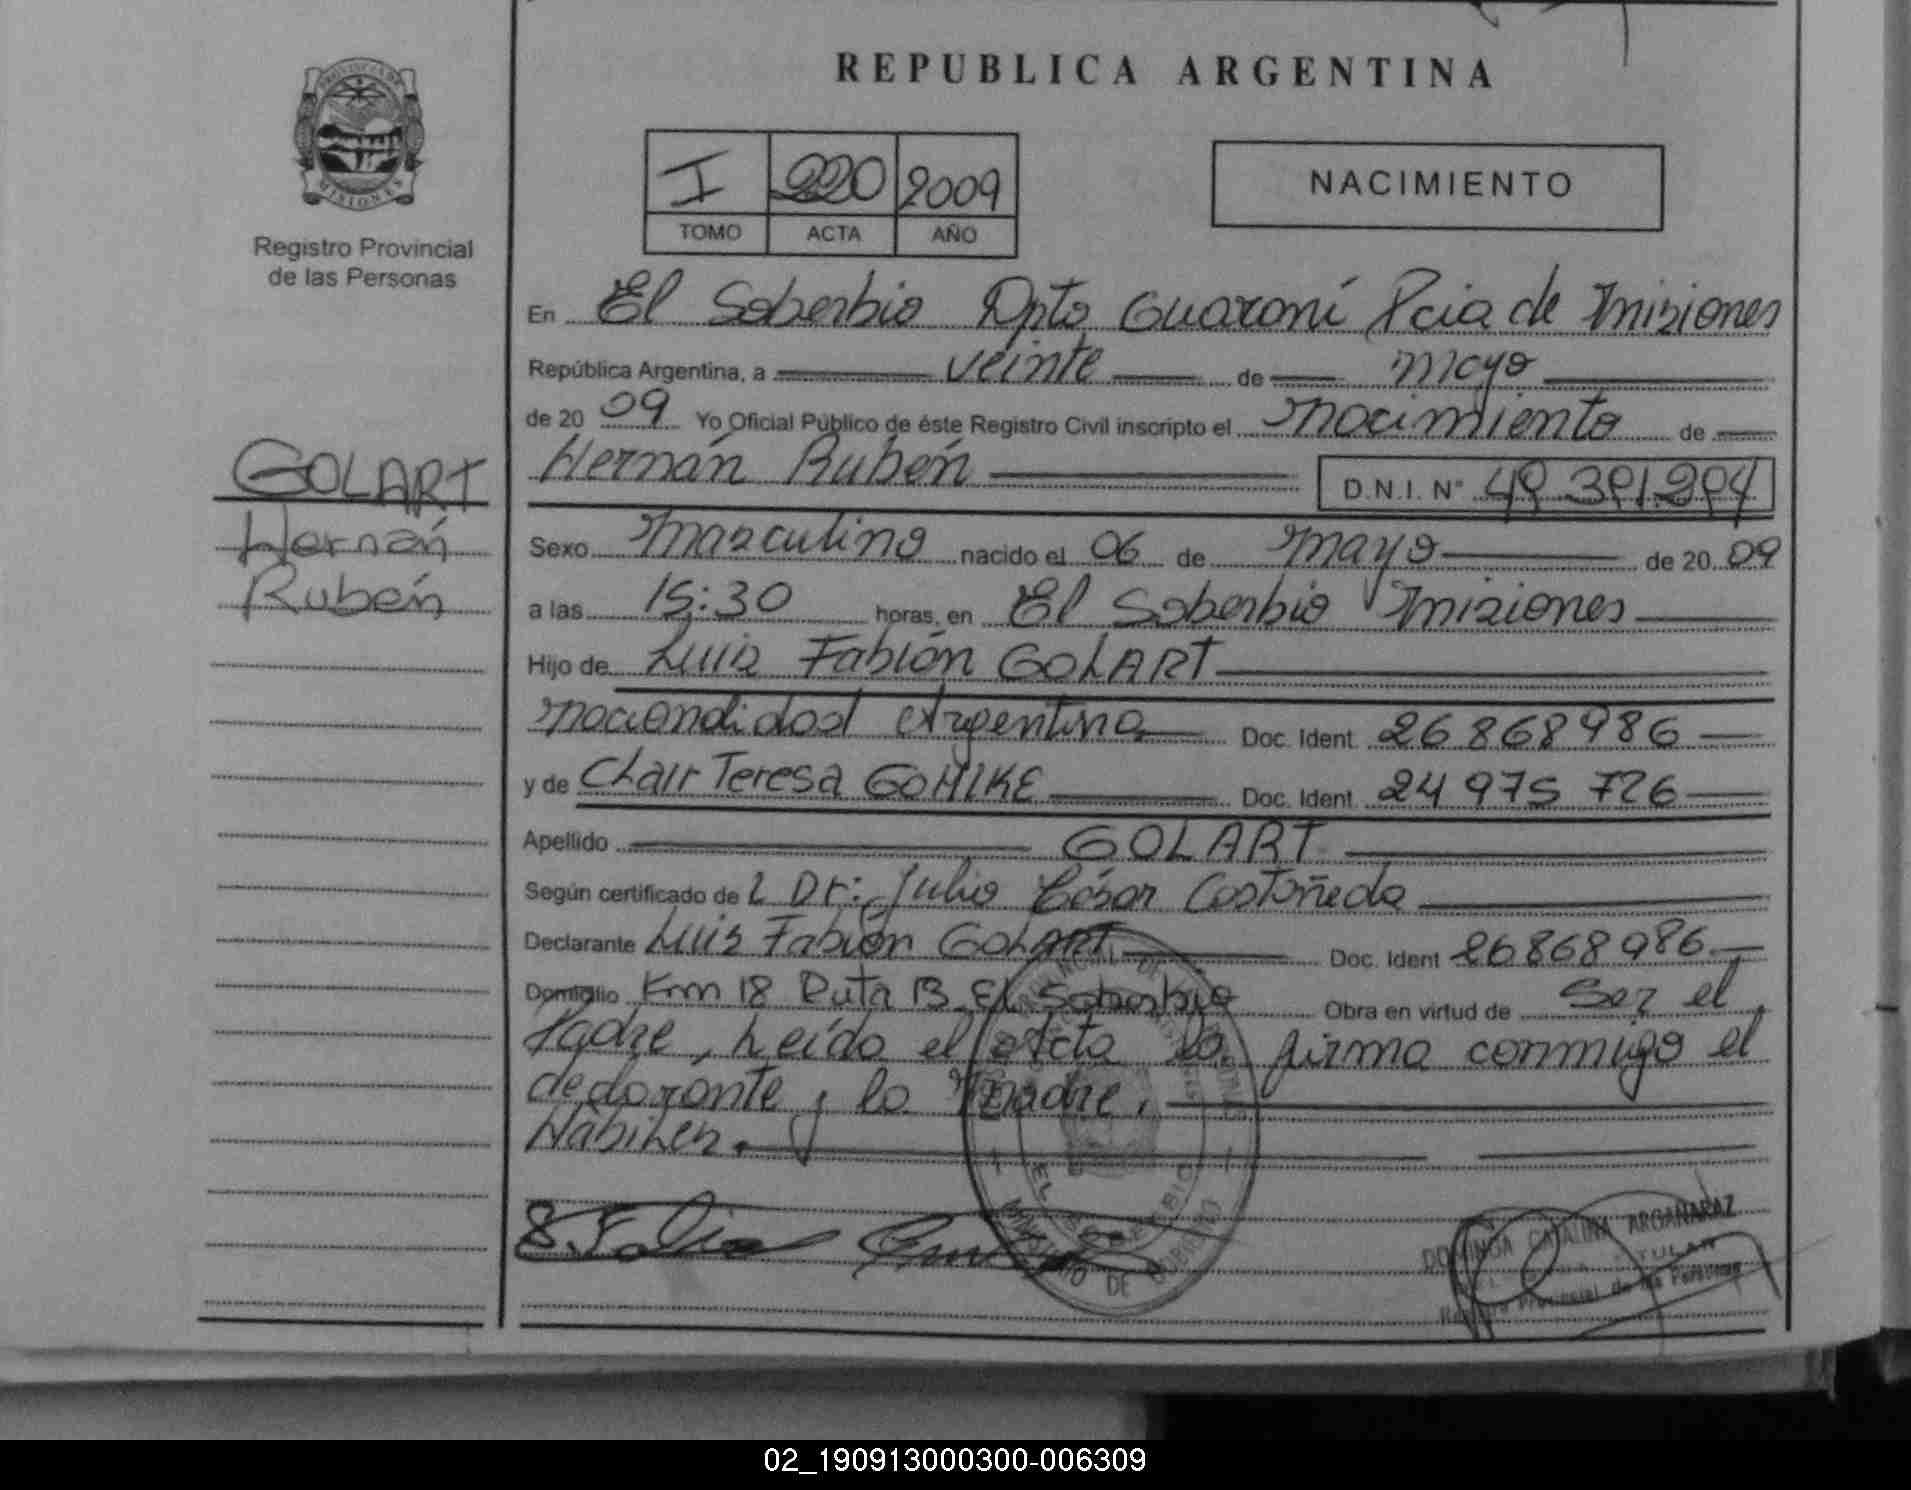 REPUBLICA ARGENTINA
PROVINCIA DE
MISIONES
Registro Provincial
de las Personas
I 220 2009
TOMO ACTA AÑO
NACIMIENTO
En El Soberbio Dpto Guaraní Pcia de Misiones
República Argentina, a veinte de mayo
de 20 09 Yo Oficial Público de éste Registro Civil inscripto el nacimiento de
Hernán Rubén D.N.I. N° 49.391.294
GOLART
Hernán
Rubén
Sexo Masculino nacido el 06 de mayo de 20 09
a las 15:30 horas, en El Soberbio Misiones
Hijo de Luis Fabián GOLART
nacionalidad Argentina Doc. Ident. 26 868 986
y de Clair Teresa GOHLKE Doc. Ident. 24 975 726
Apellido GOLART
Según certificado de L Dr: Julio César Castañeda
Declarante Luis Fabián GOLART Doc. Ident 26868986
Domicilio Km 18 Ruta 13 El Soberbio Obra en virtud de Ser el
Padre, Leída el Acta la firma conmigo el
declarante y la Madre.
EL SOBERBIO
MINISTERIO DE GOBIERNO
DOMINGA CATALINA ARGAÑARAZ
TITULAR
Registro Provincial de las Personas
02_190913000300-006309